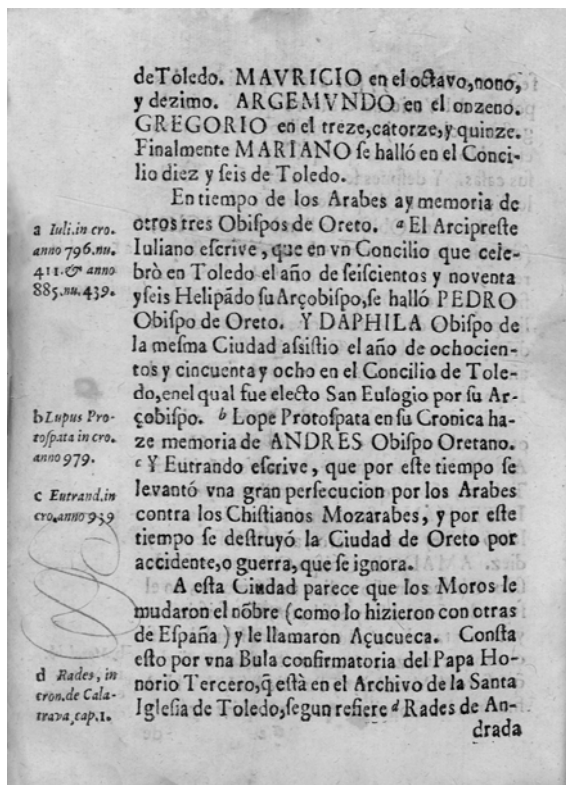 de Toledo. MAVRICIO en el octavo, nono,
y dezimo. ARGEMVNDO en el onzeno.
GREGORIO en el treze, catorze, y quinze.
Finalmente MARIANO ſe halló en el Conci-
lio diez y ſeis de Toledo.
En tiempo de los Arabes ay memoria de
otros tres Obiſpos de Oreto. ª El Arcipreſte
Iuliano eſcrive, que en vn Concilio que cele-
brò en Toledo el año de ſeiſcientos y noventa
y ſeis Helipãdo ſu Arçobiſpo, ſe halló PEDRO
Obiſpo de Oreto. Y DAPHILA Obiſpo de
la meſma Ciudad aſsiſtio el año de ochocien-
tos y cincuenta y ocho en el Concilio de Tole-
do, enel qual fue electo San Eulogio por ſu Ar-
çobiſpo. b Lope Protoſpata en ſu Cronica ha-
ze memoria de ANDRES Obiſpo Oretano.
c Y Eutrando eſcrive, que por eſte tiempo ſe
levantó vna gran perſecucion por los Arabes
contra los Chiſtianos Mozarabes, y por eſte
tiempo ſe deſtruyó la Ciudad de Oreto por
accidente, o guerra, que ſe ignora.
A eſta Ciudad parece que los Moros le
mudaron el nõbre (como lo hizieron con otras
de Eſpaña) y le llamaron Açucueca. Conſta
eſto por vna Bula confirmatoria del Papa Ho-
norio Tercero, q̃ eſtà en el Archivo de la Santa
Igleſia de Toledo, ſegun refiere d Rades de An-
drada
a Iuli. in cro.
anno 796. nu.
411. & anno
885. nu. 439.
b Lupus Pro-
toſpata in cro.
anno 979.
c Eutrand. in
cro. anno 939
d Rades, in
cron. de Cala-
trava, cap. 1.